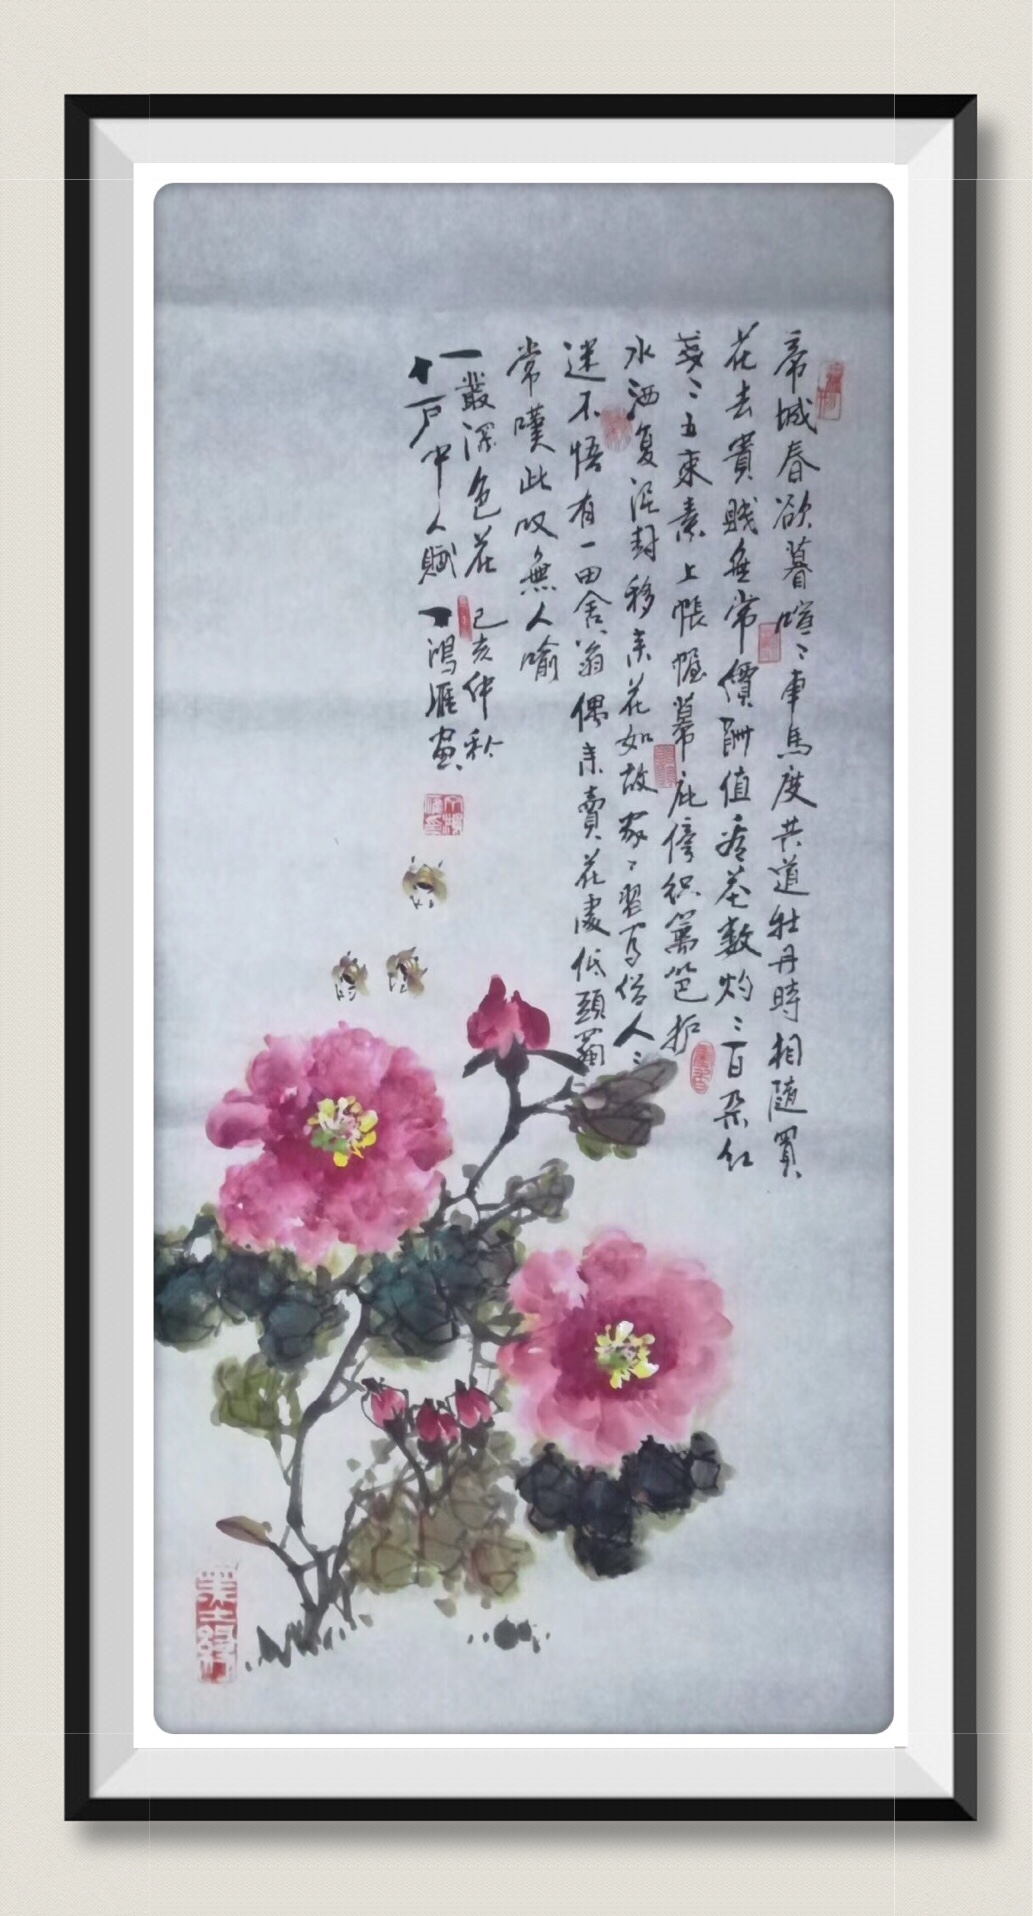 帝城春欲暮喧〻車馬度共道牡丹時相隨買
花去貴賤無常價酬值看花數灼〻百朵紅
戔〻五束素上帳幄幕庇傍織籬笆护
水洒复泥封移来花如故家〻習為俗人〻
迷不悟有一田舍翁偶来賣花處低頭獨
常嘆此叹無人喻
一叢深色花 己亥仲秋
十户中人賦 鴻雁画